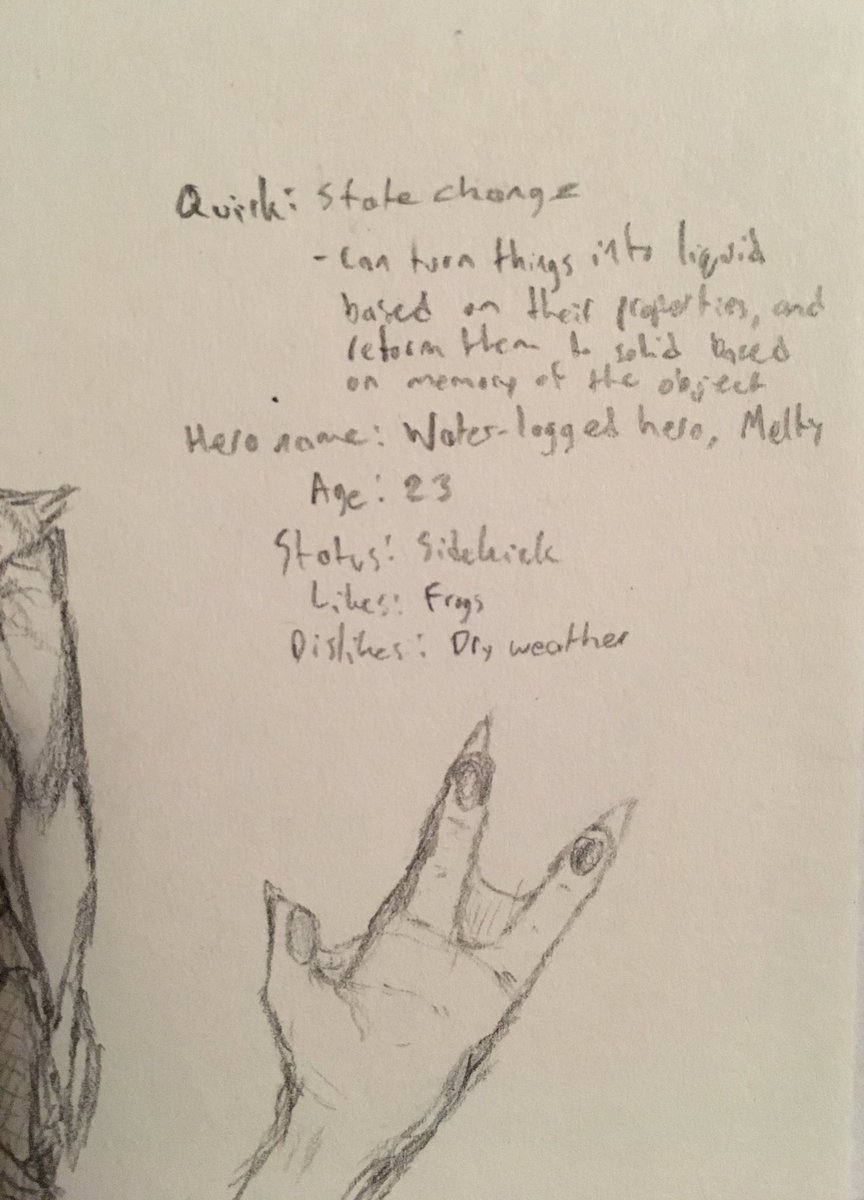 Quirk: State change
- Can turn things into liquid
based on their properties, and
reform them to solid based
on memory of the object
Hero name: Water-logged hero, Melty
Age: 23
Status: Sidekick
Likes: Frogs
Dislikes: Dry weather